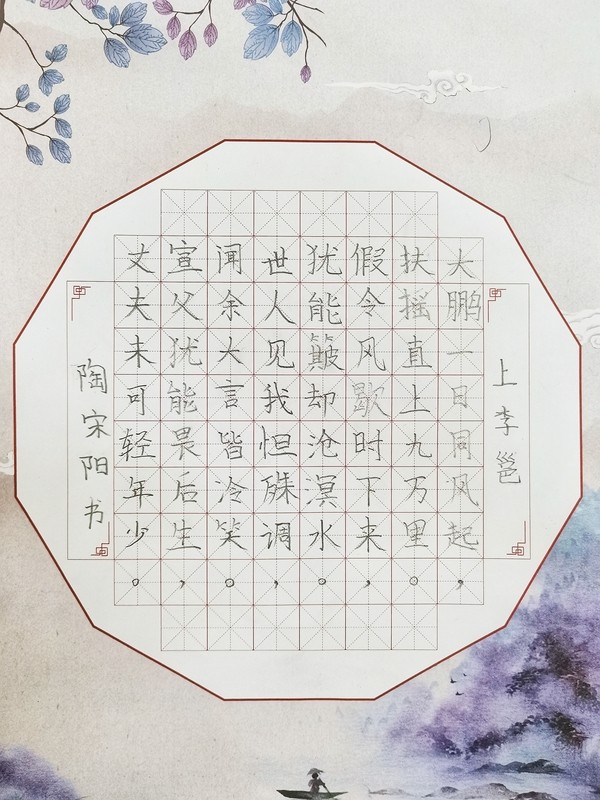 上李邕
大鹏一日同风起，
扶摇直上九万里。
假令风歇时下来，
犹能簸却沧溟水。
世人见我恒殊调，
闻余大言皆冷笑。
宣父犹能畏后生，
丈夫未可轻年少。
陶宋阳书